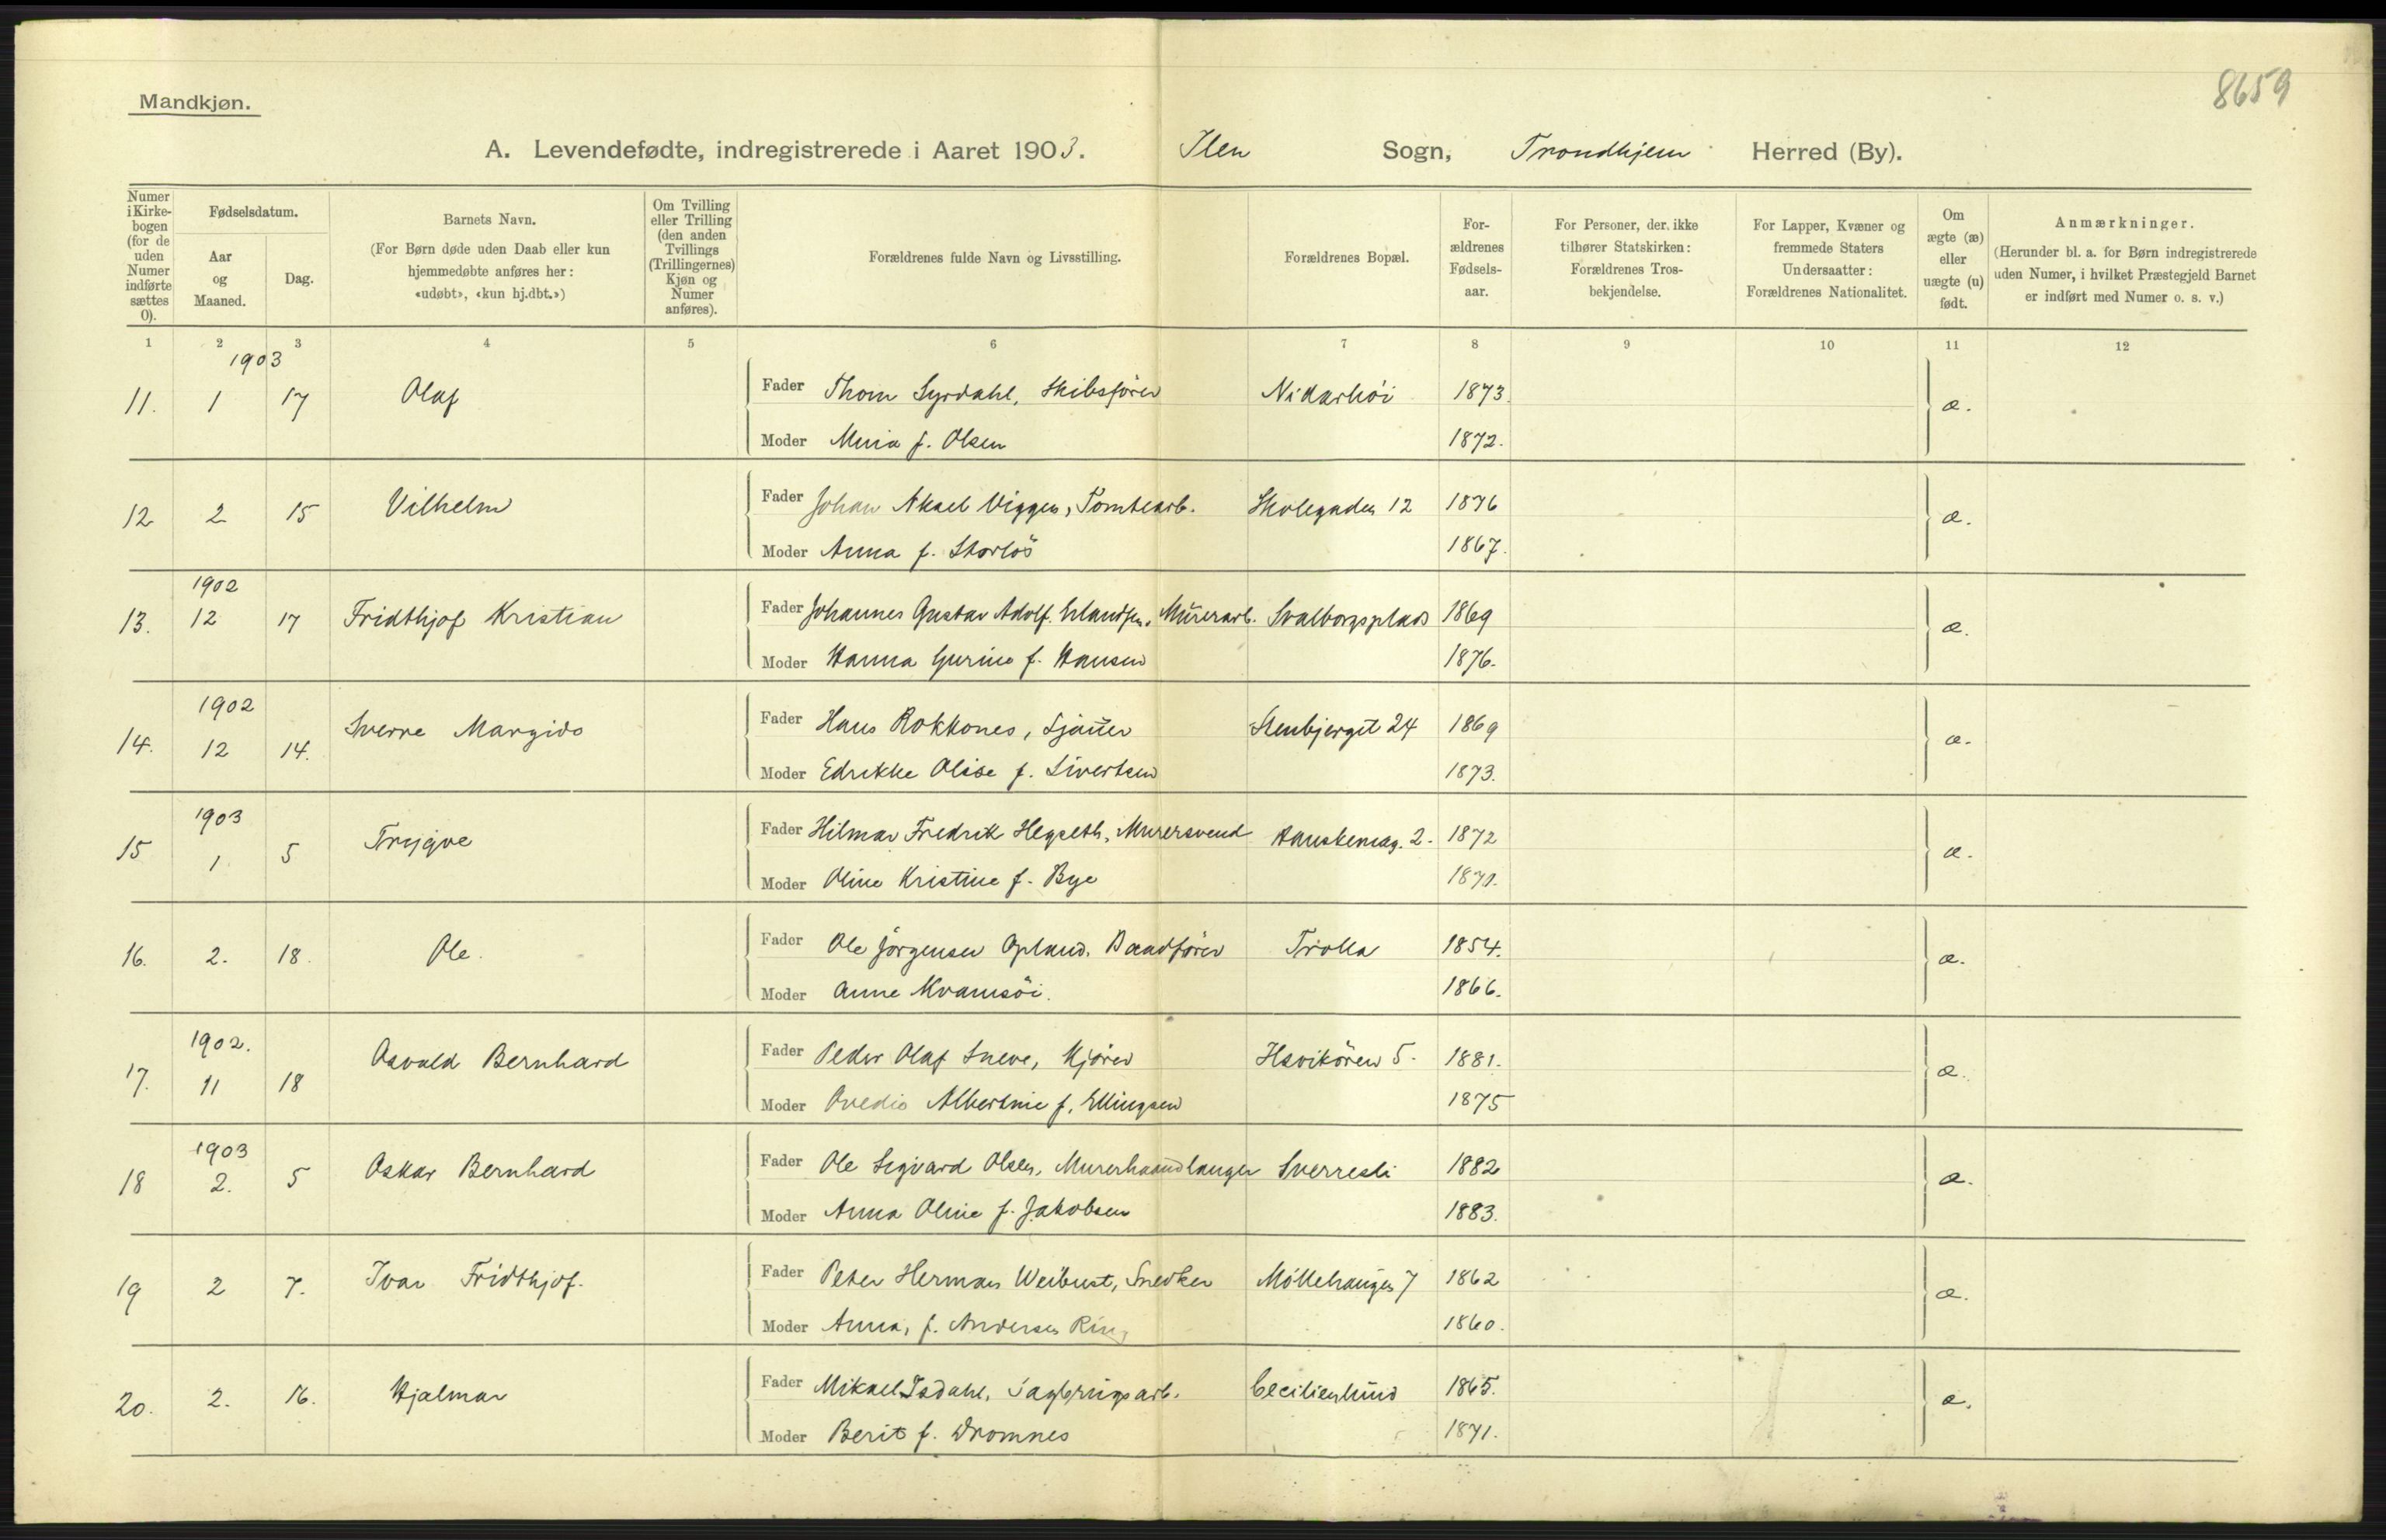 8659
Mandkjøn.
A. Levendefødte, indregistrerede i Aaret 1903. Ilen Sogn, Trondhjem Herred (By).
Numer i Kirkebogen (for de uden Numer indførte sættes 0).
Fødselsdatum.
Aar og Maaned.
Dag.
Barnets Navn.
(For Børn døde uden Daab eller kun hjemmedøbte anføres her: «udøbt», «kun hj.dbt.»)
Om Tvilling eller Trilling (den anden Tvillings (Trillingernes) Kjøn og Numer anføres).
Forældrenes fulde Navn og Livsstilling.
Forældrenes Bopæl.
Forældrenes Fødselsaar.
For Personer, der ikke tilhører Statskirken: Forældrenes Trosbekjendelse.
For Lapper, Kvæner og fremmede Staters Undersaatter: Forældrenes Nationalitet.
Om ægte (æ) eller uægte (u) født.
Anmærkninger.
(Herunder bl. a. for Børn indregistrerede uden Numer, i hvilket Præstegjeld Barnet er indført med Numer o. s. v.)
1 2 3 4 5 6 7 8 9 10 11 12
1903
11. 1 17 Olaf Fader Thom Syrdahl, Skibsförer Nidarhöi 1873. æ.
Moder f. Olsen 1872.
12 2 15 Vilhelm Fader Johan Aksel Viggen, Tomtearb. Skolegaden 12 1876 æ.
Moder Anna f. Storlös 1867.
1902
13. 12 17 Fridthjof Kristian Fader Johannes Gustav Adolf Erlandsen, Murerarb. Svalborgsplads 1869 æ.
Moder Hanna Gurine f. Hansen 1876.
1902
14. 12 14. Sverre Margido Fader Hans Rokkones, Sjauer Stenbjerget 24 1869 æ.
Moder Edrikke Olise f. Sivertsen 1873.
1903
15 1 5 Trygve Fader Hilmar Fredrik Hegseth, Murersvend Hanskemag. 2. 1872 æ.
Moder Oline Kristine f. Bye 1871.
16. 2. 18. Ole. Fader Ole Jörgensen Opland. Baadförer Trolla 1854. æ.
Moder Anne Kvamsöi. 1866.
1902.
17. 11 18 Osvald Bernhard Fader Peder Olaf Sneve, Kjörer Ilsvikören 5. 1881. æ.
Moder Ovedie Albertine f. Ellingsen 1875
1903
18 2. 5 Oskar Bernhard Fader Ole Sigvard Olsen, Murerhaandlanger Sverresli 1882 æ.
Moder Anna Oline f. Jakobsen 1883.
19 2 7. Ivar Fridthjof. Fader Peter Herman Weibust, Snedker Möllebaugen 7 1862 æ.
Moder Anna, f. Andersen Ring 1860.
20. 2. 16. Hjalmar Fader Mikael Isdahl, Sagbrugsarb. Cecilienlund 1865. æ.
Moder Berit f. Dromnes 1871.